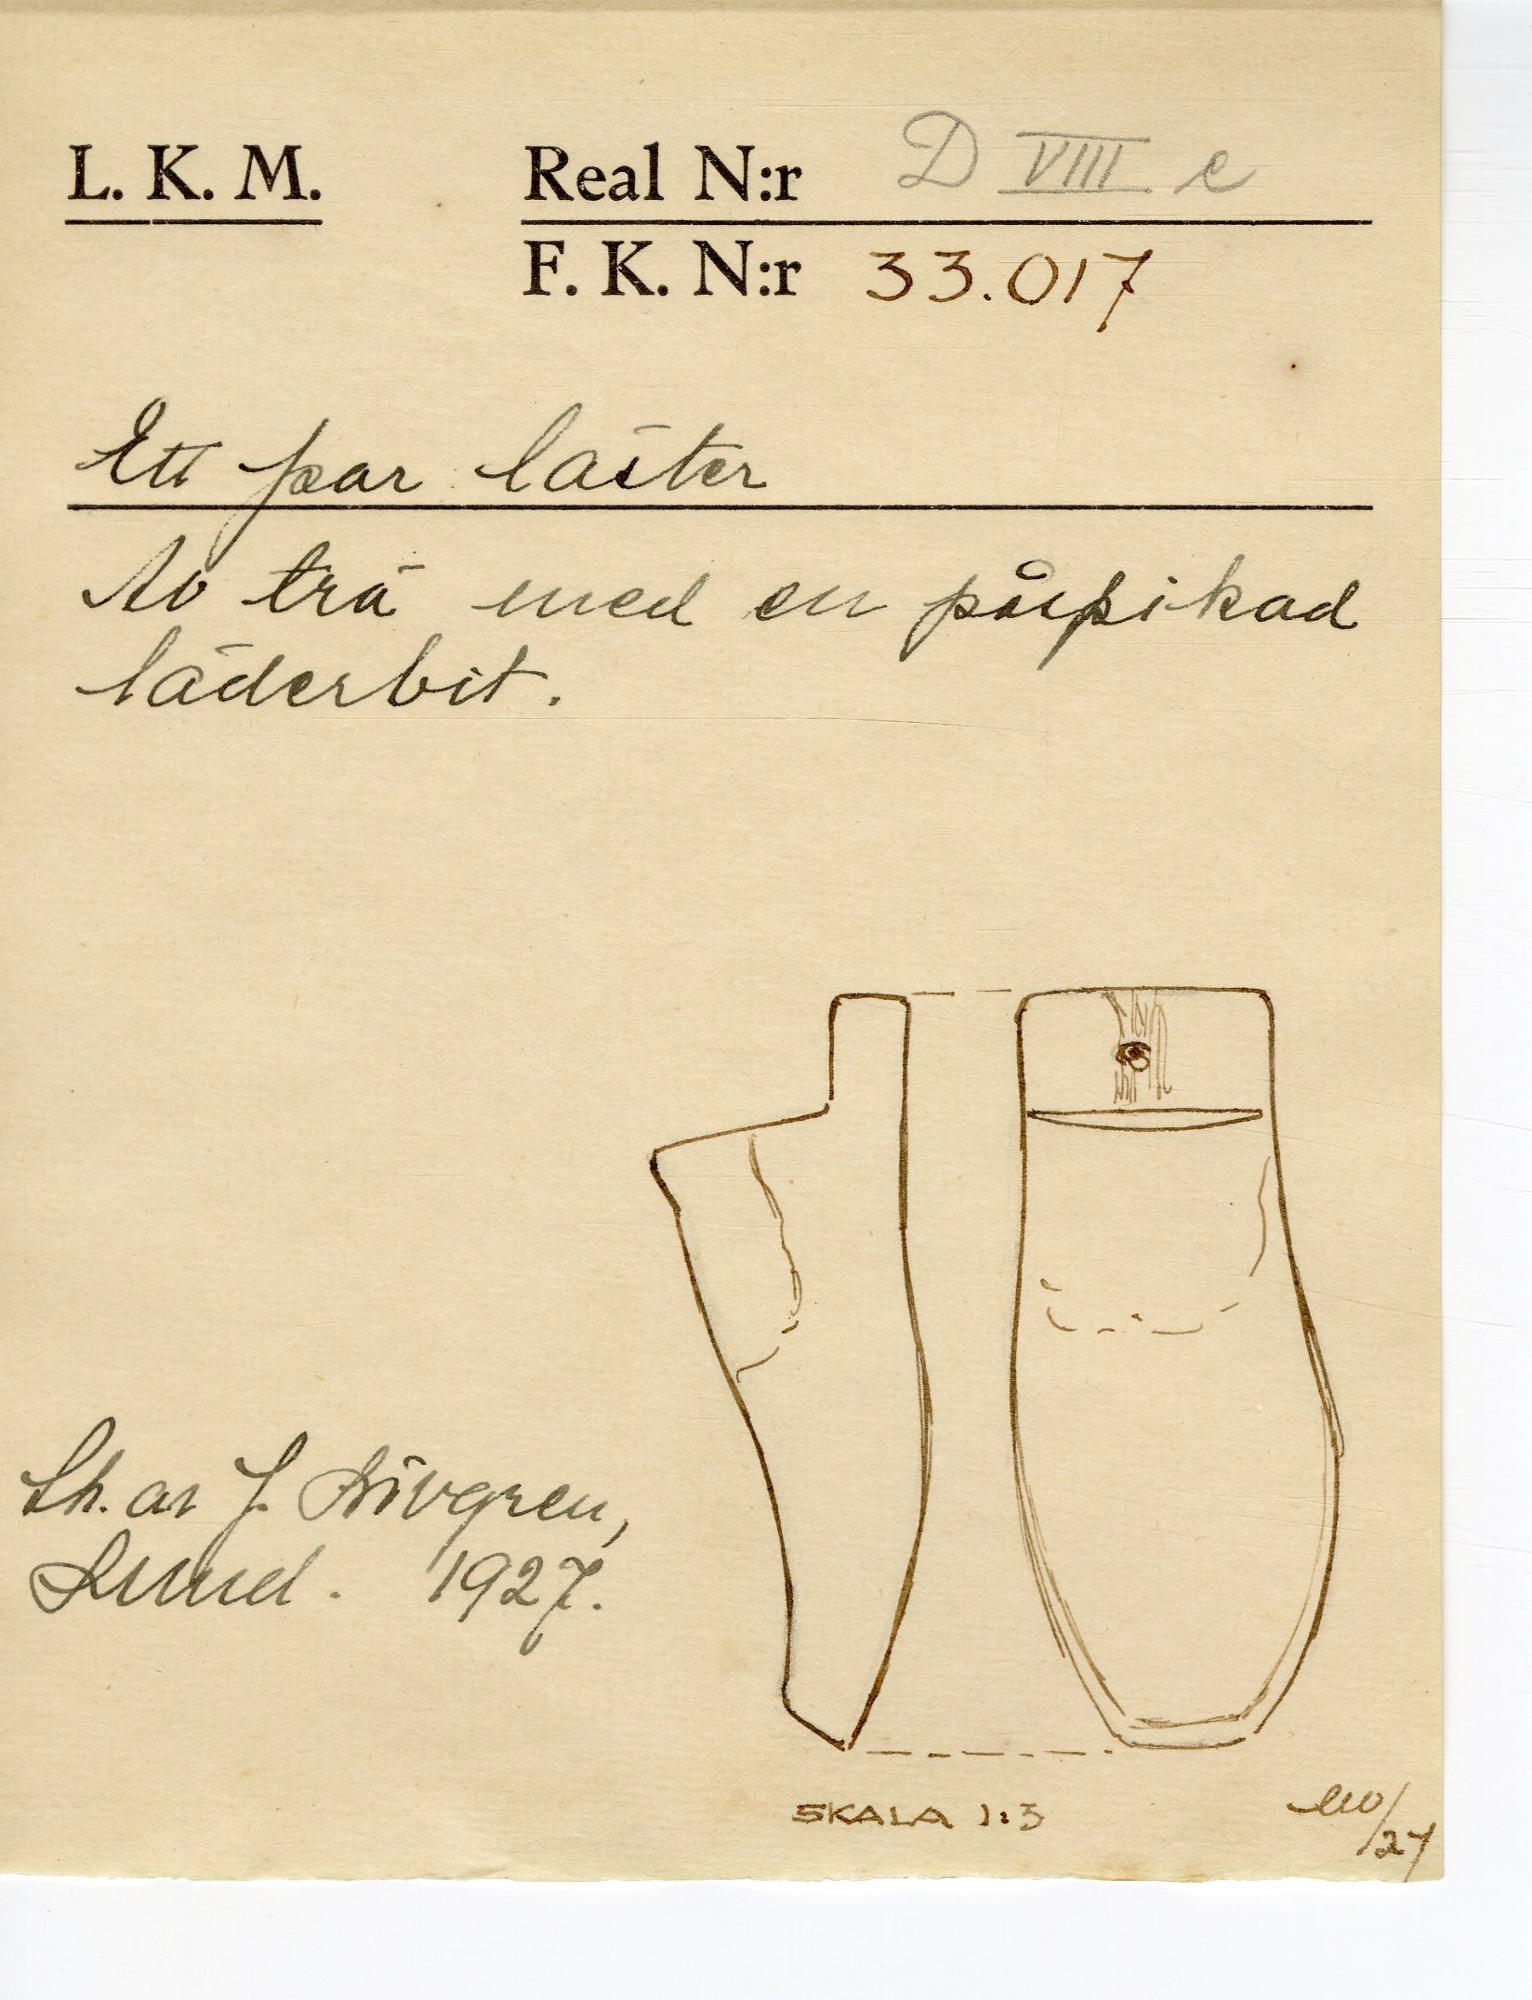 L. K. M.
Real N:r D VIII e
F. K. N:r 33.017
Ett par läster
Av trä med en påspikad
läderbit.
Sk. av J.
Lund. 1927.
SKALA 1:3
/27